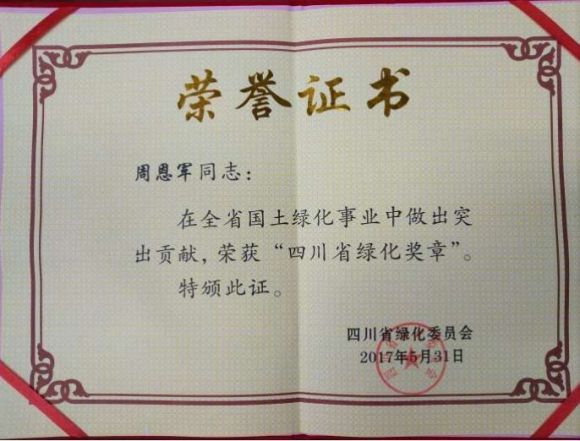 荣誉证书
周恩军同志：
在全省国土绿化事业中做出突
出贡献，荣获“四川省绿化奖章”。
特颁此证。
四川省绿化委员会
2017年5月31日